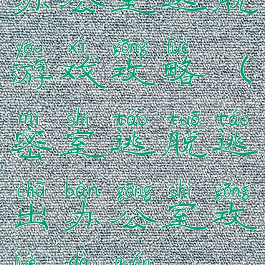 办公室逃脱
yóu xì gōng lüè
游戏攻略（
mì shì táo tuō táo
密室逃脱逃
chū bàn gōng shì gōng
出办公室攻
lüè dà quán